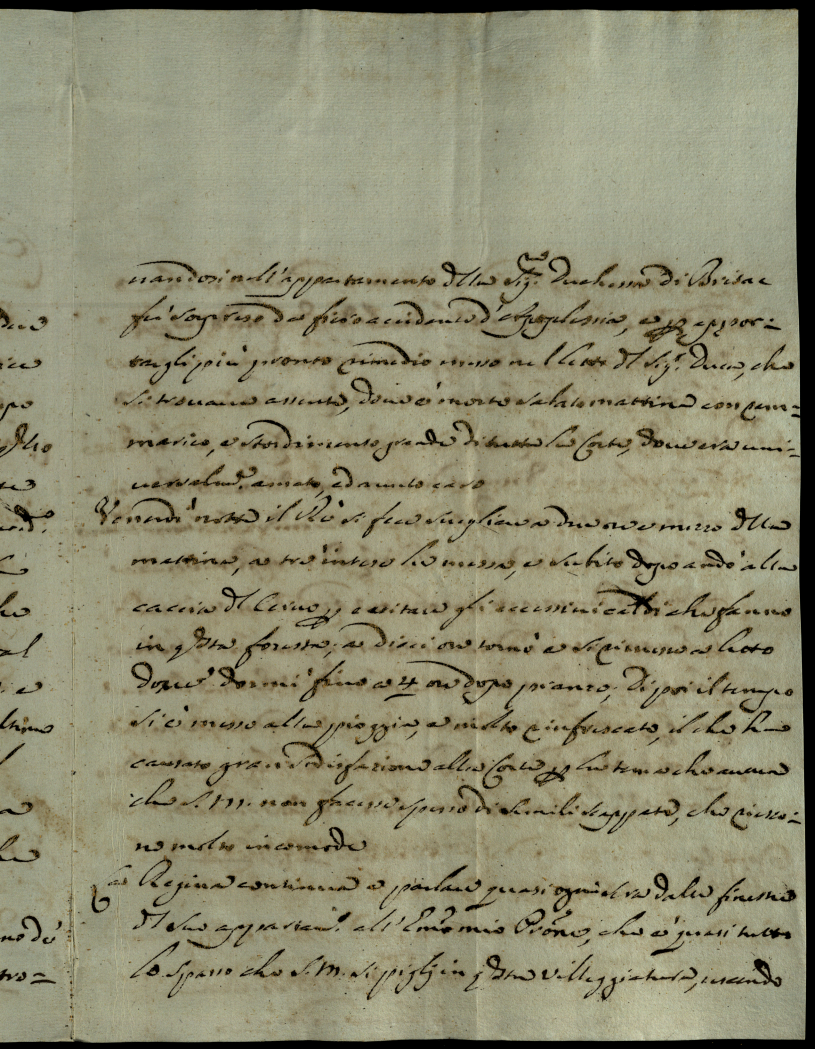 nandosi nell'appartamento della Sig.ra Duchessa di Brisac
fù sorpreso da fiero accidente d'Apoplessia, e p appor=
targli più pronto rimedio messo nel letto del Sig.r Duca, che
si trovava assente, dove è morto sabato mattina con ram=
marico, e stordimento grande di tutta la Corte, dove era uni=
versalm.e amato, ed avuto caro
Venerdì notte il Rè si fece svegliare a due ore e mezzo della
mattina, a tre intese la messa, e subito dopo andò alla
caccia del Cervo p evitare gli eccessivi caldi che fanno
in qsta foresta; a dieci ore tornò e si rimesse a letto
dove dormì fino a 4 ore dopo pranzo; Di poi il tempo
si è messo alla pioggia, e molto rinfrescato, il che ha
causato gran sodisfazione alla Corte p la tema che aveva
che S. M. non facesse spesso di simili scappate, che riesco=
no molto incomode
La Regina continua a parlare quasi ogni sera dalle finestre
del suo appartam.o all'Em.o mio Prone, che è quasi tutto
lo spasso che S. M. si pigli in qsta villeggiatura, uscendo
due
ice
qsto
te
he
al
e
ltimo
a
no dè
tro=